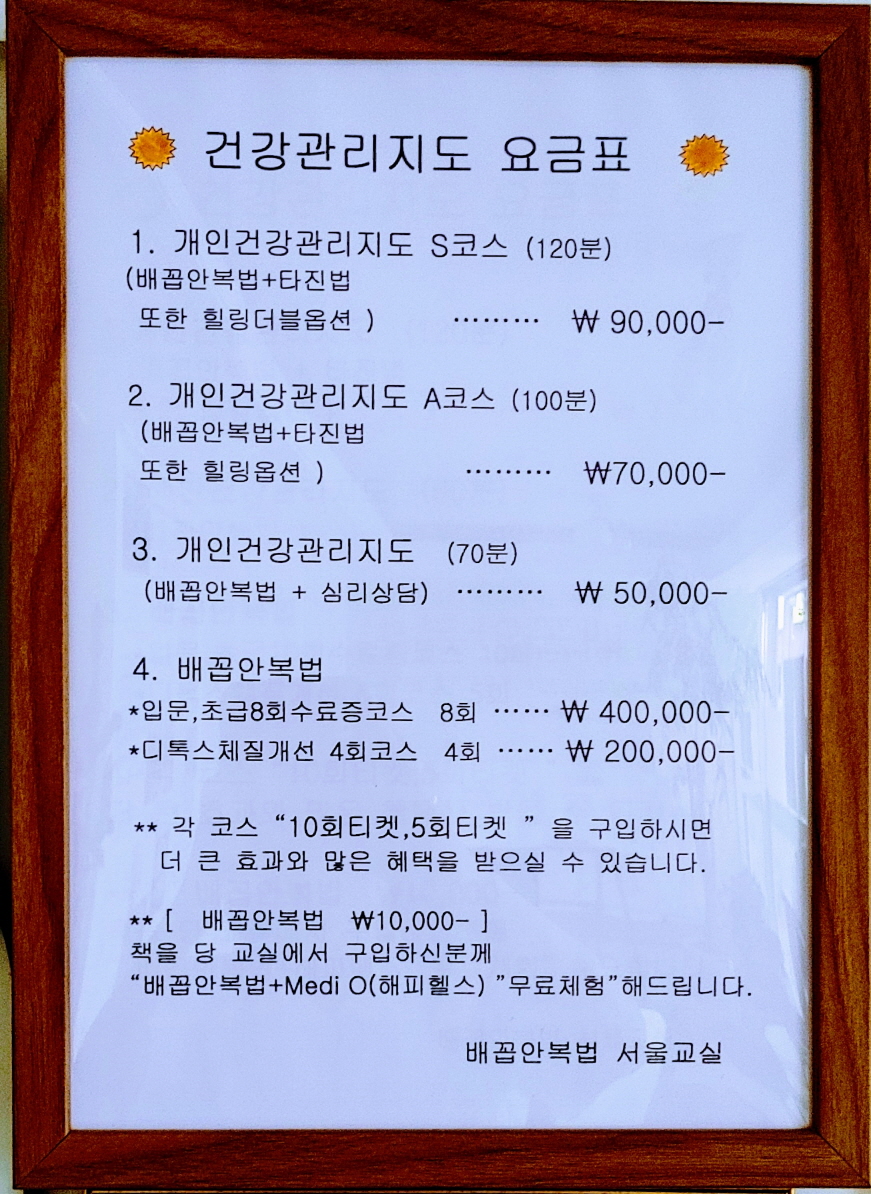 건강관리지도 요금표
1. 개인건강관리지도 S코스 (120분)
(배꼽안복법+타진법
또한 힐링더블옵션 ) ········· ₩ 90,000–
2. 개인건강관리지도 A코스 (100분)
(배꼽안복법+타진법
또한 힐링옵션 ) ········· ₩70,000–
3. 개인건강관리지도 (70분)
(배꼽안복법 + 심리상담) ········· ₩ 50,000–
4. 배꼽안복법
*입문,초급8회수료증코스 8회 ······ ₩ 400,000–
*디톡스체질개선 4회코스 4회 ······ ₩ 200,000–
** 각 코스 “10회티켓,5회티켓 ” 을 구입하시면
더 큰 효과와 많은 혜택을 받으실 수 있습니다.
** [ 배꼽안복법 ₩10,000– ]
책을 당 교실에서 구입하신분께
“배꼽안복법+Medi O(해피헬스) ”무료체험”해드립니다.
배꼽안복법 서울교실